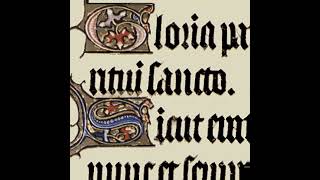 Gloria pa
ritui sancto.
Sicut erat
nunc et semp